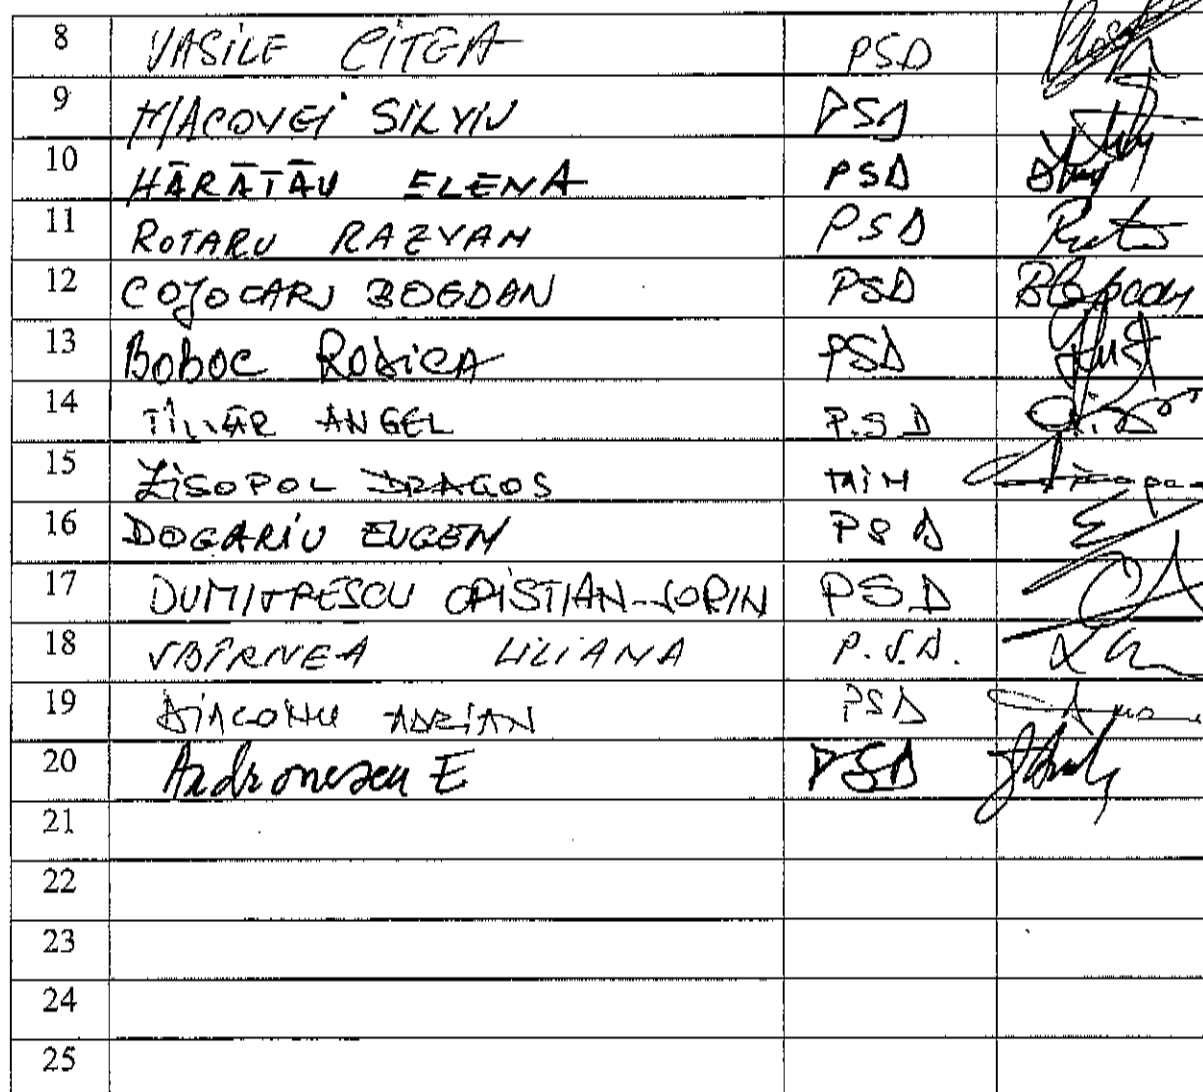 8 VASILE CITEA PSD
9 MACOVEI SILVIU PSD
10 HĂRĂTĂU ELENA PSD
11 ROTARU RAZVAN PSD
12 COJOCARU BOGDAN PSD
13 BOBOC RODICA PSD
14 TÎLVĂR ANGEL P.S.D
15 ZISOPOL DRAGOS MIN
16 DOGARIU EUGEN PSD
17 DUMITRESCU CRISTIAN-SORIN PSD
18 SBÎRNEA LILIANA P.S.D.
19 DIACONU ADRIAN PSD
20 Andronescu E PSD
21
22
23
24
25